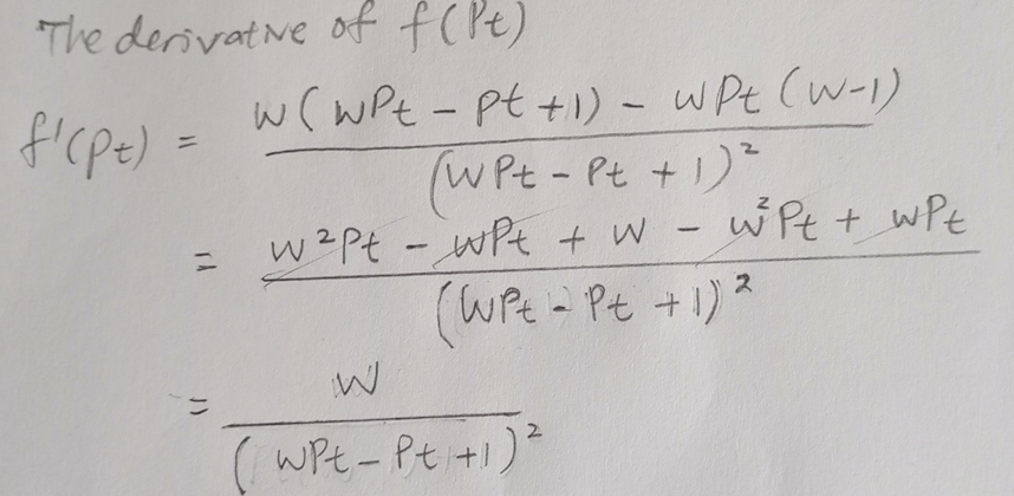 The derivative of f(Pt)
f'(Pt) = W(WPt - Pt + 1) - WPt(W-1) / (WPt - Pt + 1)²
= W²Pt - WPt + W - W²Pt + WPt / (WPt - Pt + 1)²
= W / (WPt - Pt + 1)²